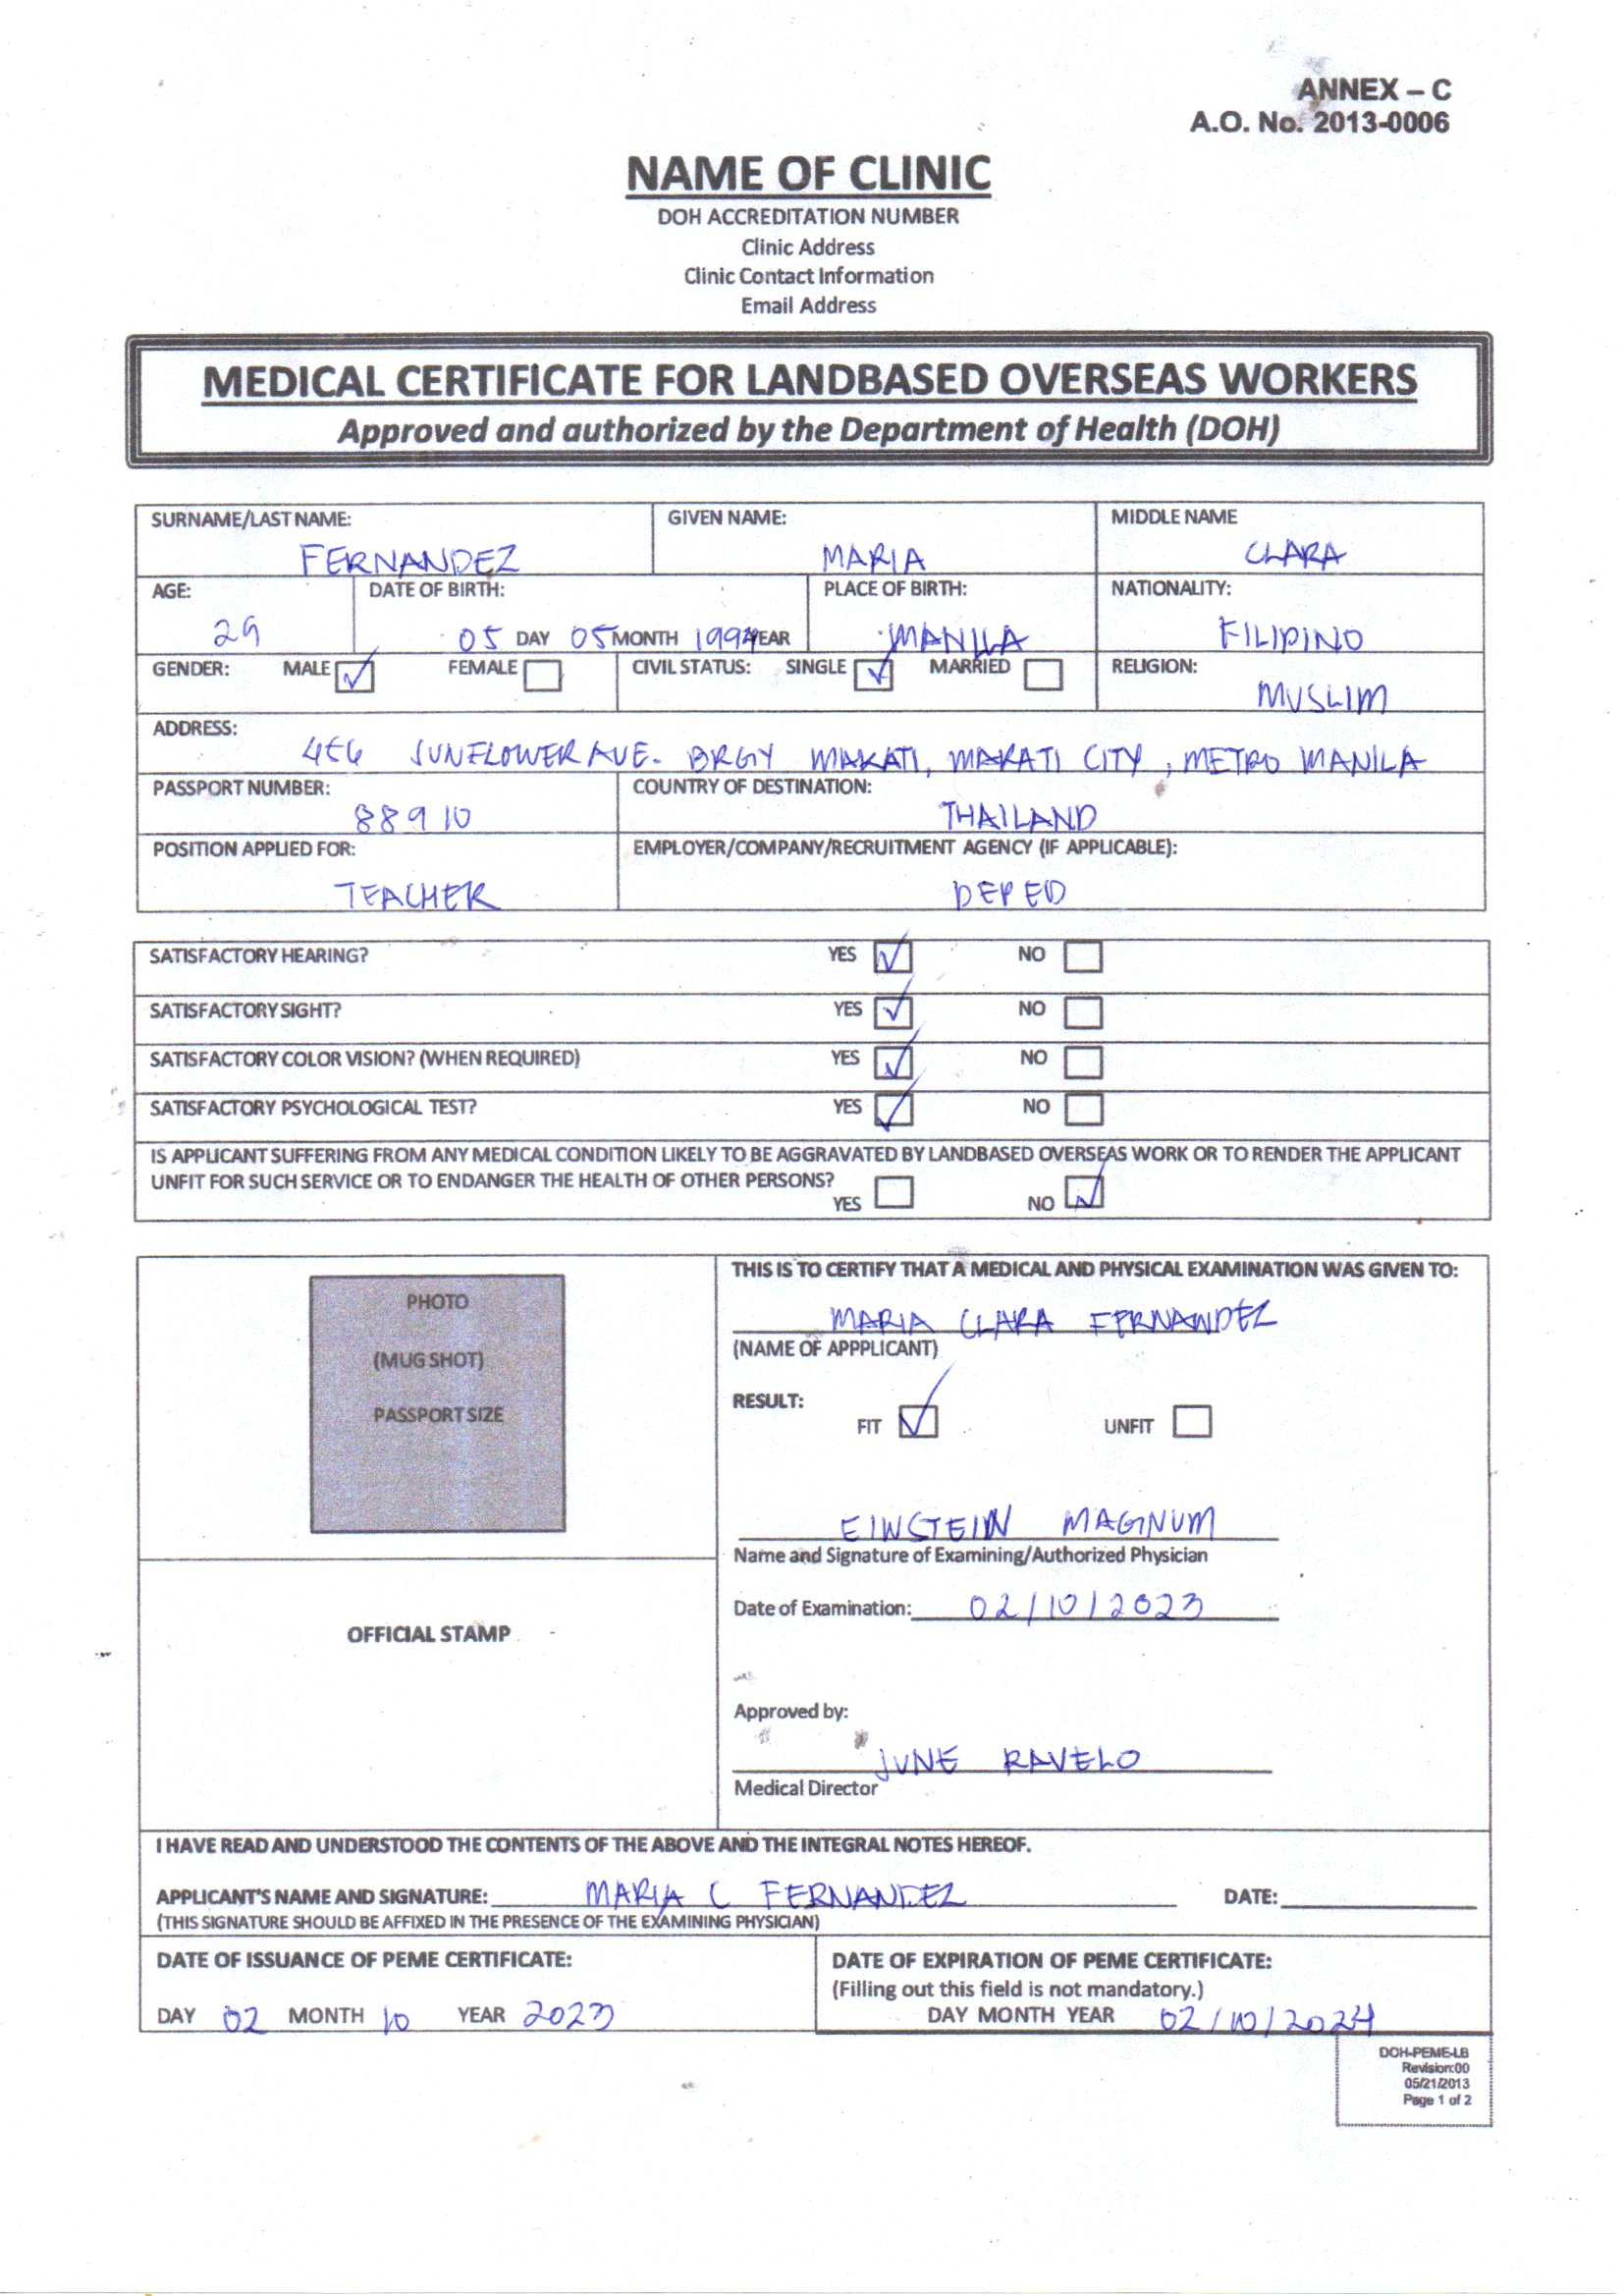 ANNEX – C
A.O. No. 2013-0006
NAME OF CLINIC
DOH ACCREDITATION NUMBER
Clinic Address
Clinic Contact Information
Email Address
MEDICAL CERTIFICATE FOR LANDBASED OVERSEAS WORKERS
Approved and authorized by the Department of Health (DOH)
SURNAME/LAST NAME: GIVEN NAME: MIDDLE NAME
FERNANDEZ MARIA CLARA
AGE: DATE OF BIRTH: PLACE OF BIRTH: NATIONALITY:
29 05 DAY 05 MONTH 1994 YEAR MANILA FILIPINO
GENDER: MALE FEMALE CIVIL STATUS: SINGLE MARRIED RELIGION:
MUSLIM
ADDRESS:
456 SUNFLOWER AVE. BRGY MAKATI, MAKATI CITY, METRO MANILA
PASSPORT NUMBER: COUNTRY OF DESTINATION:
88910 THAILAND
POSITION APPLIED FOR: EMPLOYER/COMPANY/RECRUITMENT AGENCY (IF APPLICABLE):
TEACHER DEPED
SATISFACTORY HEARING? YES NO
SATISFACTORY SIGHT? YES NO
SATISFACTORY COLOR VISION? (WHEN REQUIRED) YES NO
SATISFACTORY PSYCHOLOGICAL TEST? YES NO
IS APPLICANT SUFFERING FROM ANY MEDICAL CONDITION LIKELY TO BE AGGRAVATED BY LANDBASED OVERSEAS WORK OR TO RENDER THE APPLICANT
UNFIT FOR SUCH SERVICE OR TO ENDANGER THE HEALTH OF OTHER PERSONS?
YES NO
PHOTO
(MUG SHOT)
PASSPORT SIZE
OFFICIAL STAMP
THIS IS TO CERTIFY THAT A MEDICAL AND PHYSICAL EXAMINATION WAS GIVEN TO:
MARIA CLARA FERNANDEZ
(NAME OF APPPLICANT)
RESULT:
FIT UNFIT
EINSTEIN MAGNUM
Name and Signature of Examining/Authorized Physician
Date of Examination: 02/10/2023
Approved by:
JUNE RAVELO
Medical Director
I HAVE READ AND UNDERSTOOD THE CONTENTS OF THE ABOVE AND THE INTEGRAL NOTES HEREOF.
APPLICANT'S NAME AND SIGNATURE: MARIA C FERNANDEZ DATE:
(THIS SIGNATURE SHOULD BE AFFIXED IN THE PRESENCE OF THE EXAMINING PHYSICIAN)
DATE OF ISSUANCE OF PEME CERTIFICATE:
DAY 02 MONTH 10 YEAR 2023
DATE OF EXPIRATION OF PEME CERTIFICATE:
(Filling out this field is not mandatory.)
DAY MONTH YEAR 02/10/2024
DOH-PEME-LB
Revision:00
05/21/2013
Page 1 of 2